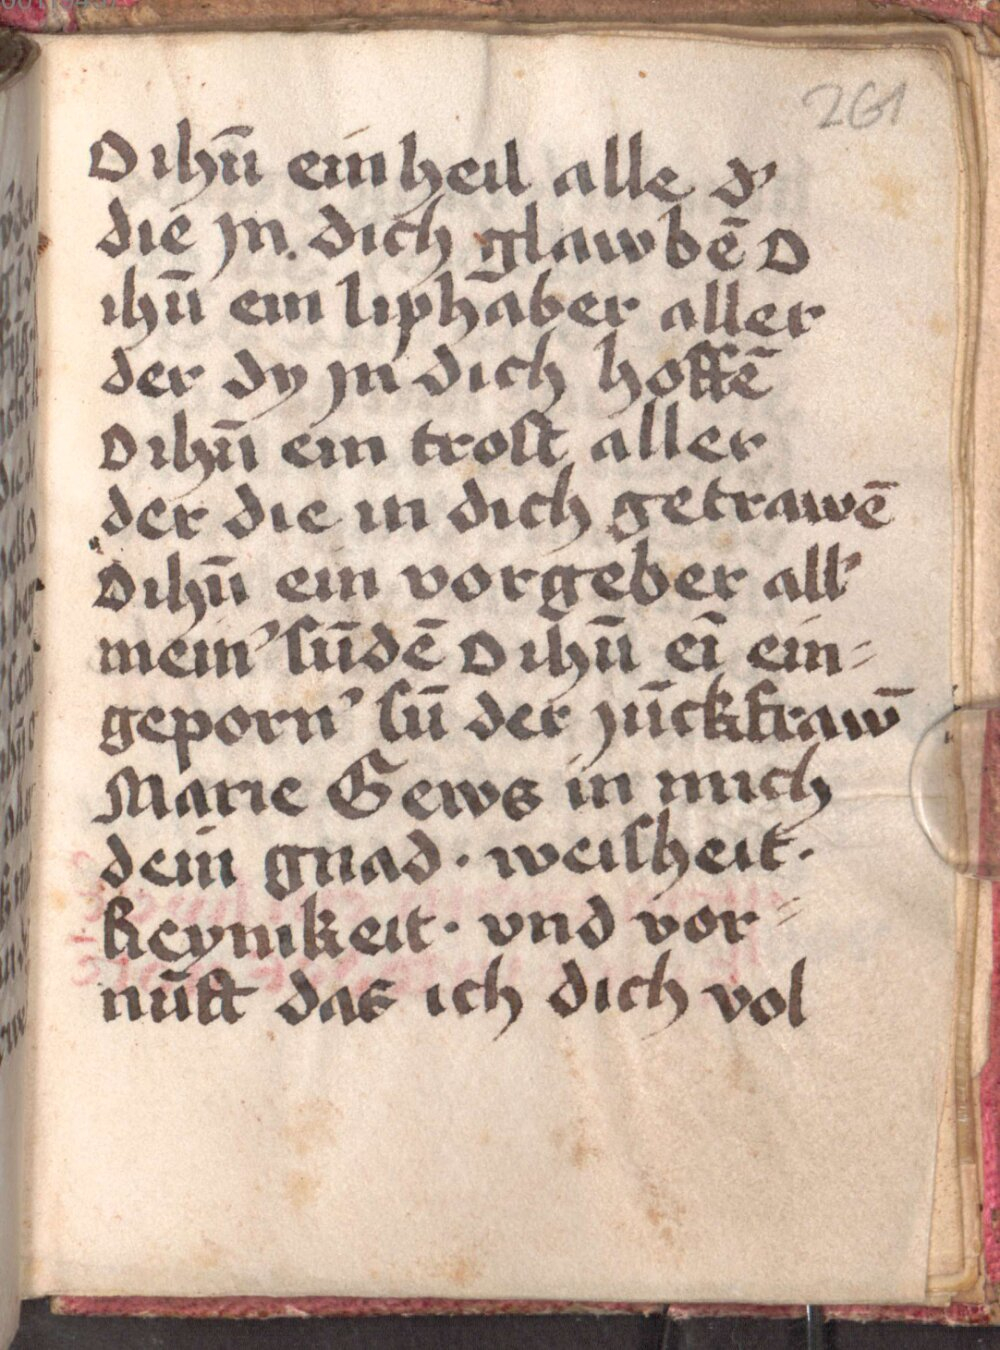 261
O ihū ein heil alle d'
die jn dich glawbē O
ihū ein liphaber aller
der dy jn dich hoffē
O ihū ein trost aller
der die in dich getrawē
O ihū ein vorgeber all'
mein' sūdē O ihū eī ein=
geporn' sū der jūckfraw̄
Marie Gews in mich
dein gnad · weisheit ·
keynikeit · vnd vor=
nūft das ich dich vol